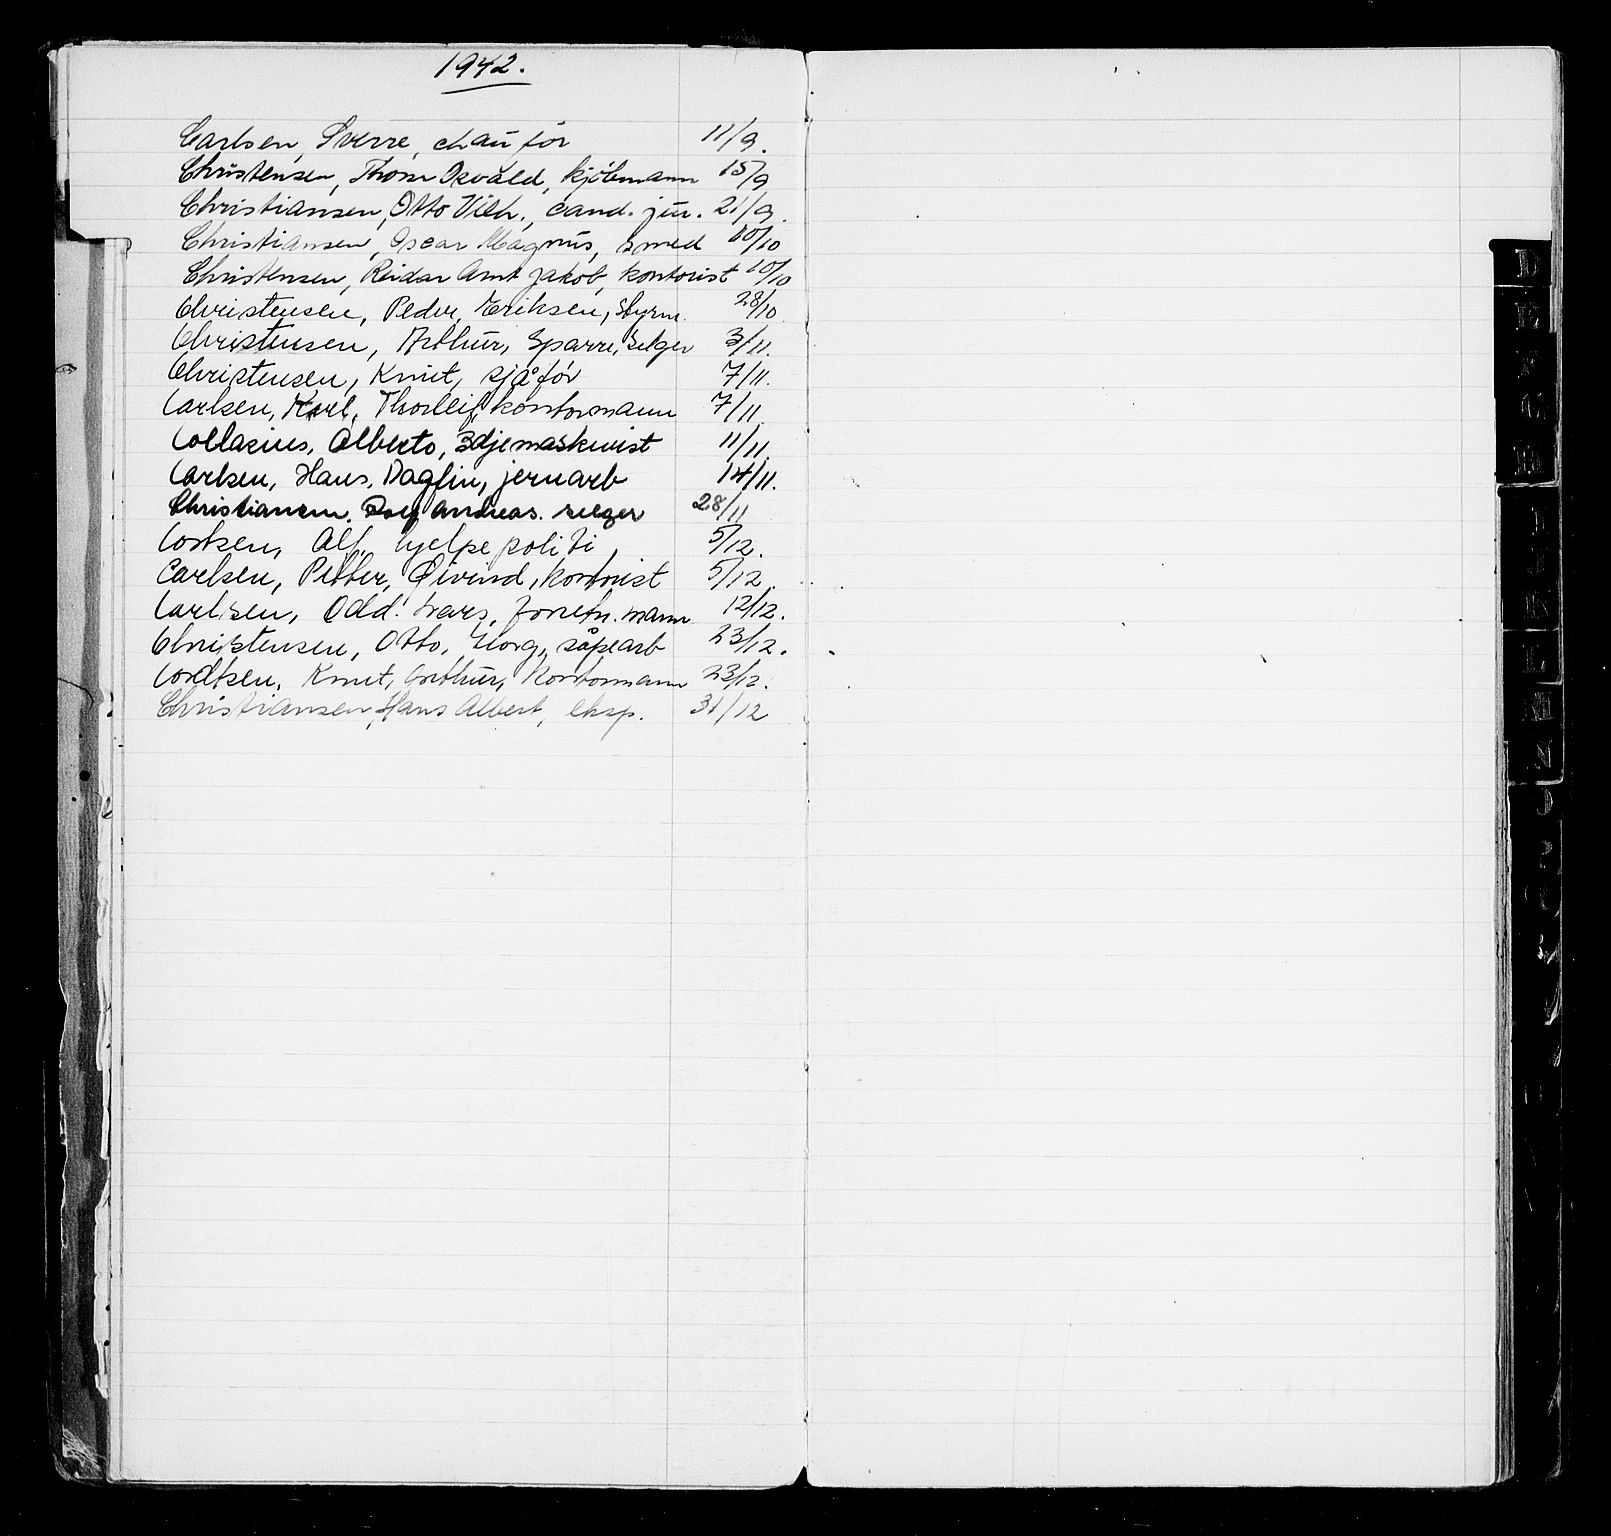 1942.
Carlsen, Sverre, chaufför 11/9.
Christensen, Thom Osvald, kjöbmann 15/9
Christiansen, Otto Vilh., cand. jur. 21/9.
Christiansen, Oscar Magnus, smed 10/10
Christensen, Reidar Arnt Jakob, kontorist 10/10
Christensen, Peder, Eriksen, styrm. 28/10
Christensen, Arthur, Sparre, selger 3/11.
Christensen, Knut, sjåför 7/11.
Carlsen, Karl, Thorleif, kontormann 7/11
Alberto, 3dje maskinist 11/11.
Carlsen, Hans, Dagfin, jernarb 14/11.
Christiansen, Andreas. selger 28/11
Alf, hjelpepoliti, 5/12.
Carlsen, Petter, Öivind, kontorist 5/12.
Carlsen, Odd. Lars, forretn.mann 12/12.
Christensen, Otto, Georg, såpearb 23/12.
Knut, Arthur, Kontormann 23/12.
Christiansen, Hans Albert, eksp. 31/12
D
E
F
G
H
I
J
K
L
M
N
O
P